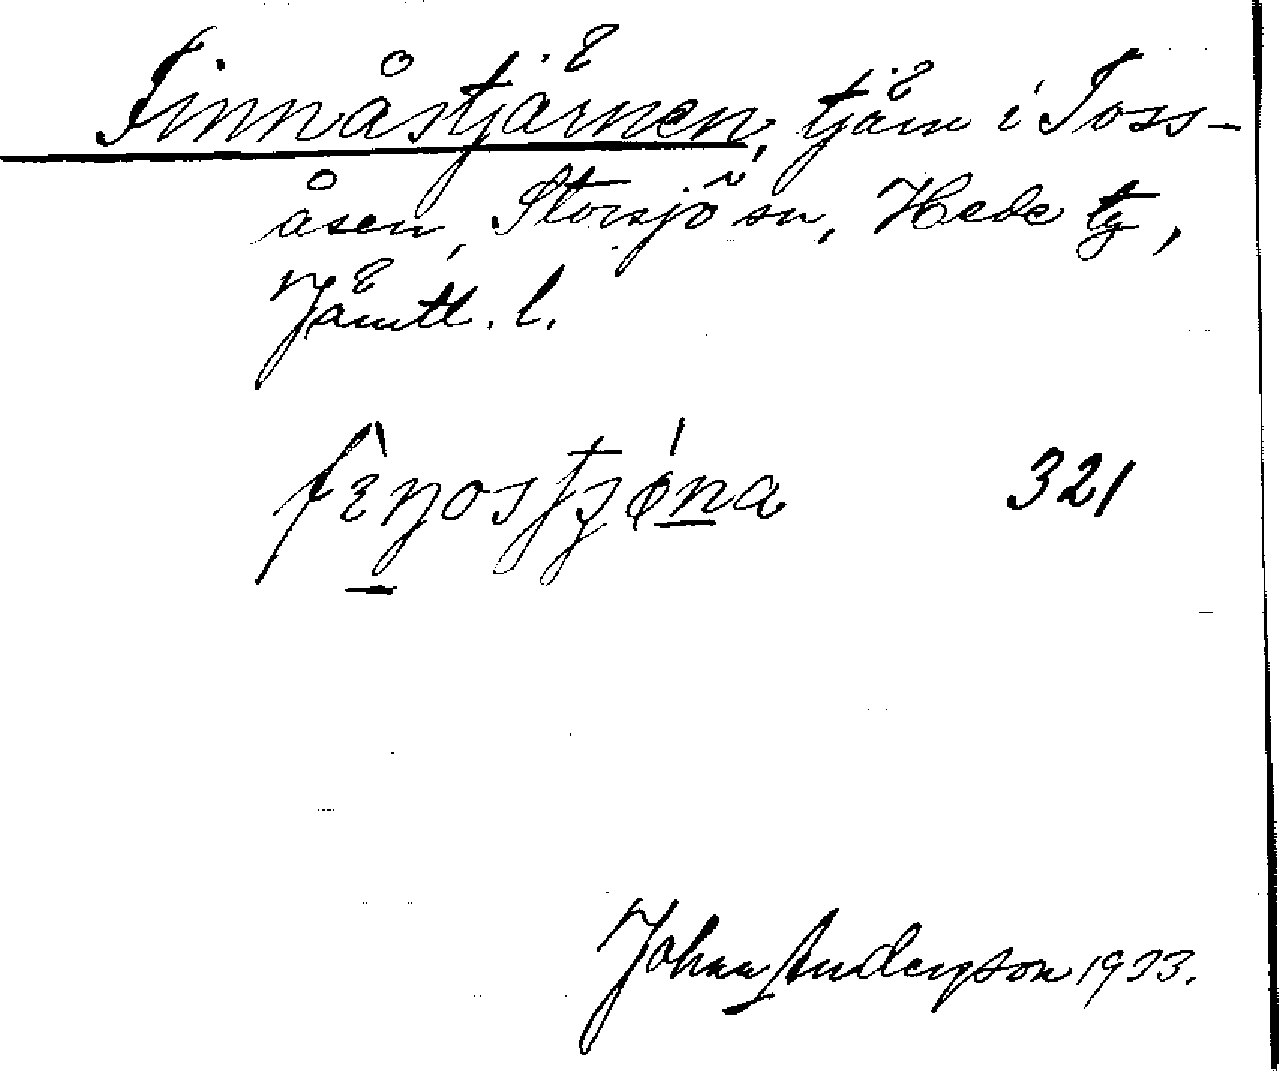 Finnåstjärnen, tjärn i Toss-
åsen, Storsjö sn, Hede tg,
Jämtl. l.
321
Johan Anderson 1933.